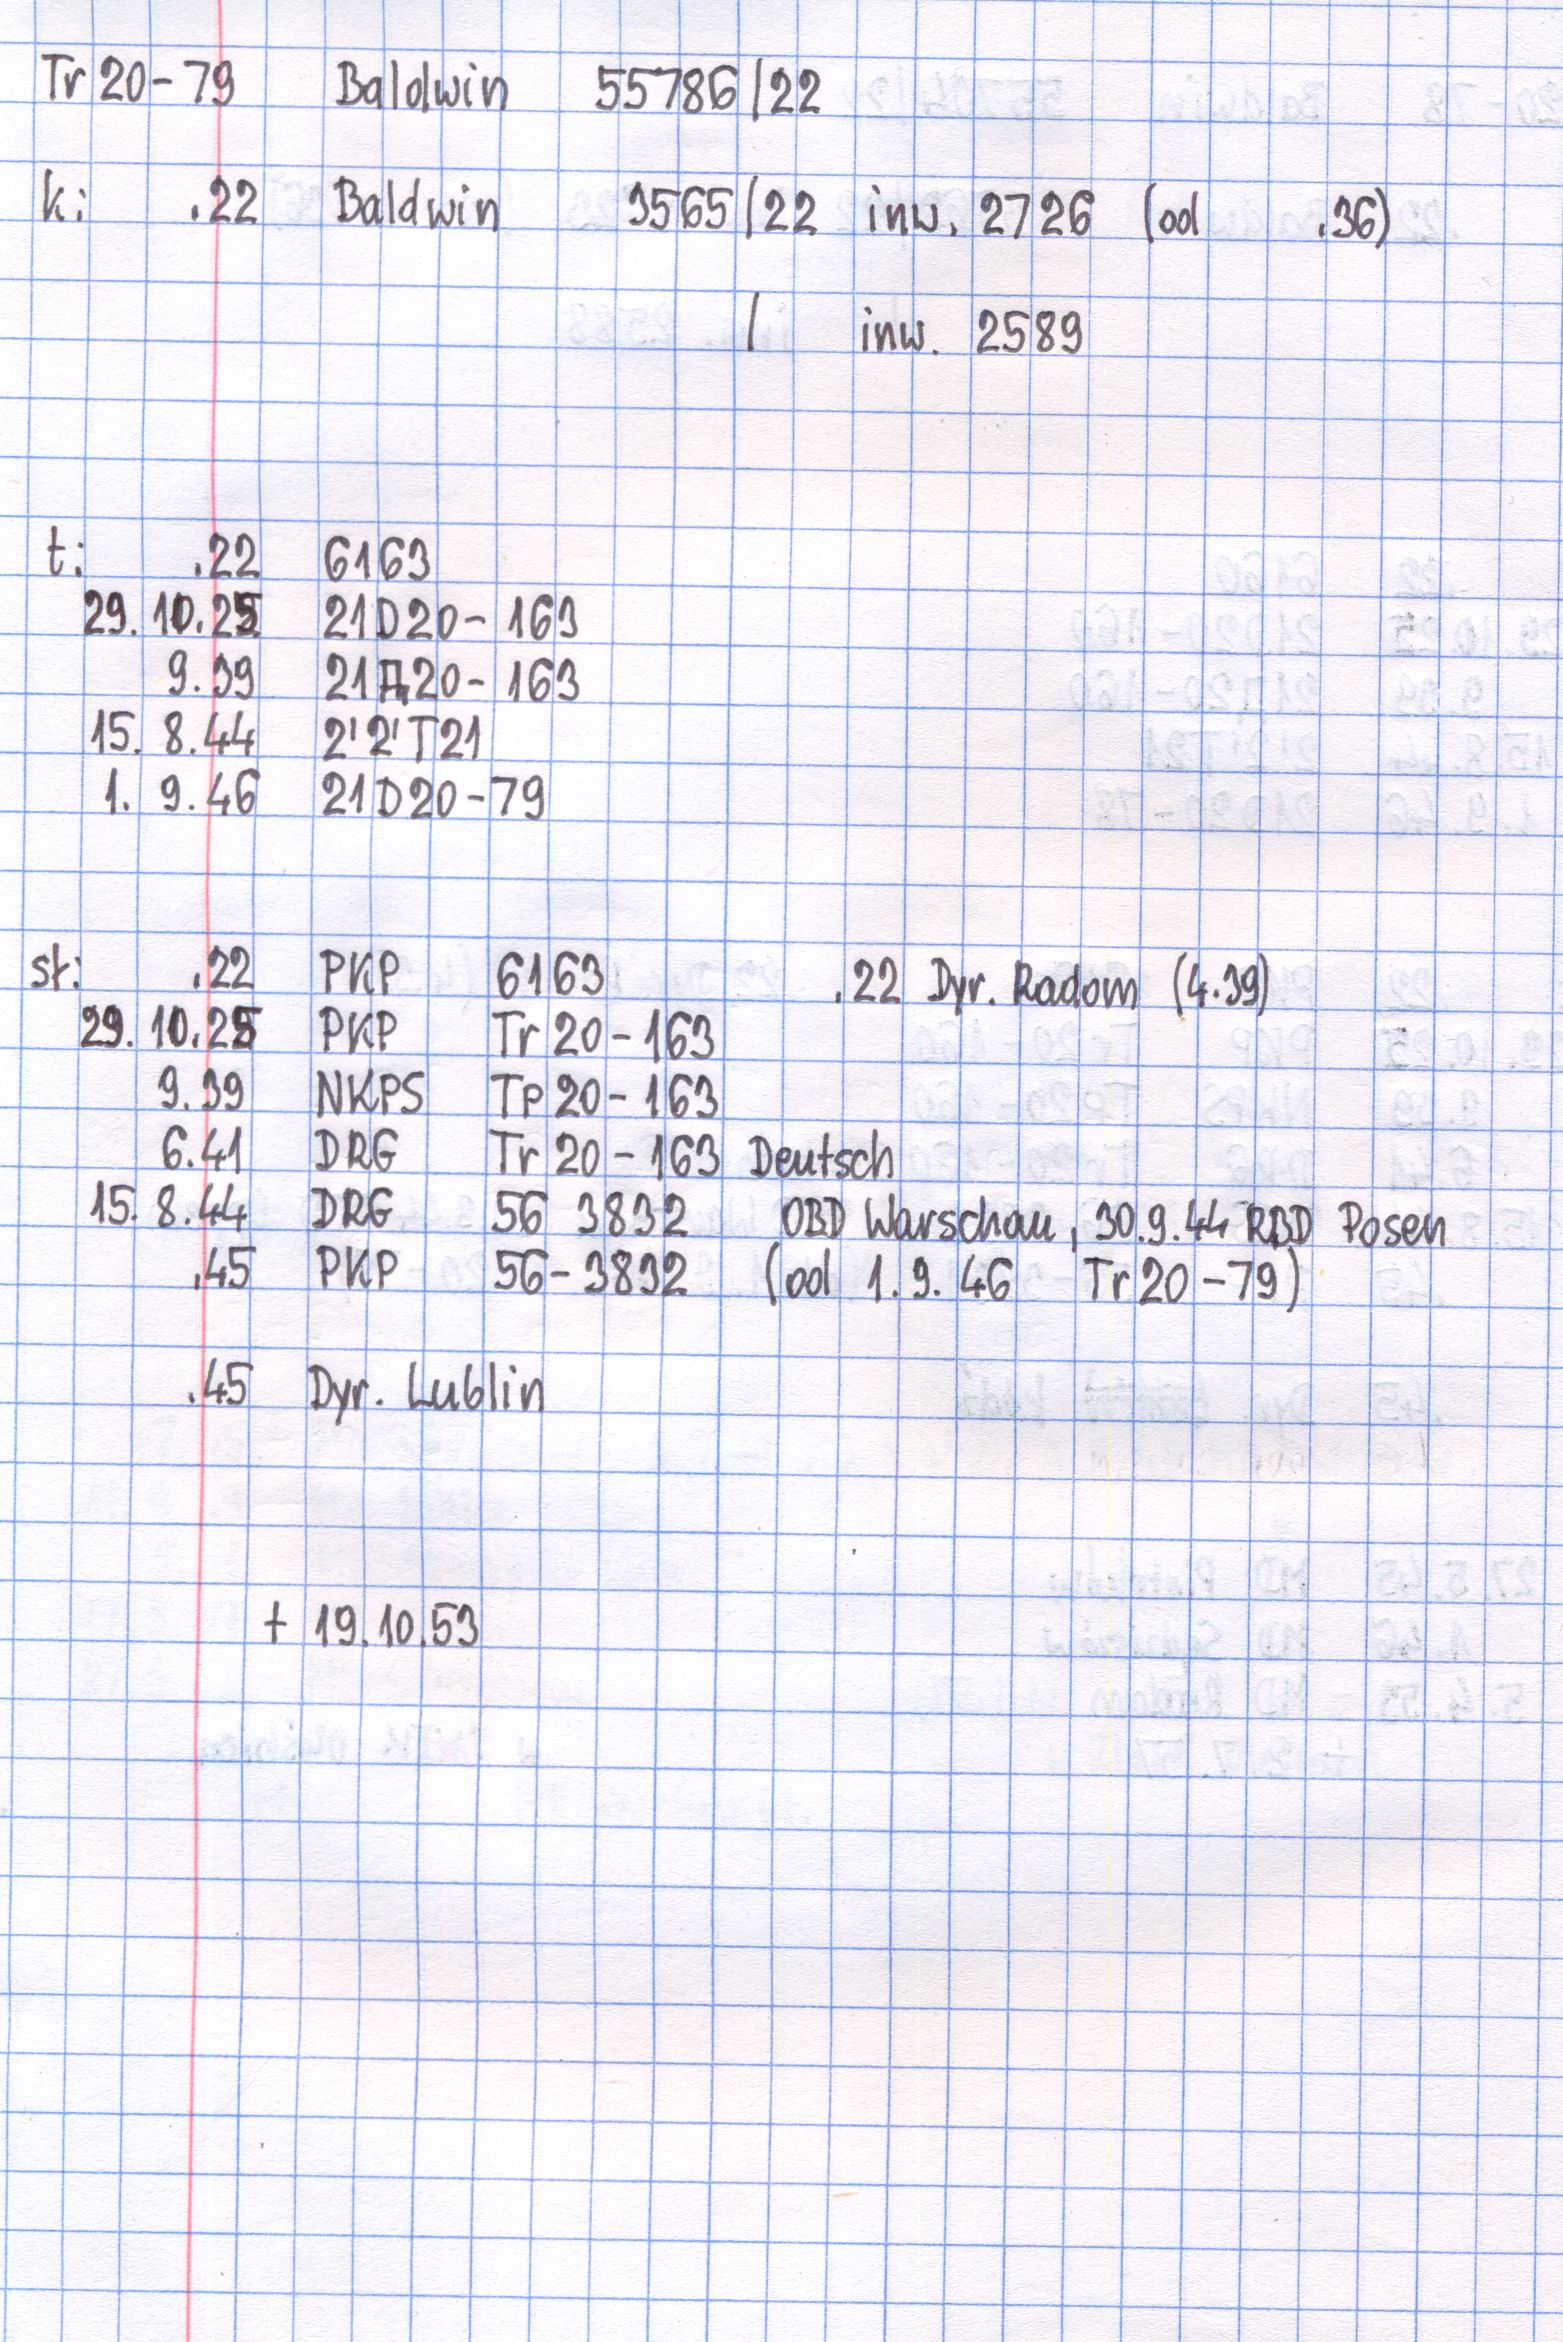 Tr 20-79 Baldwin 55786/22
k: .22 Baldwin 3565/22 inw. 2726 (od .36)
/ inw. 2589
t: .22 6163
29. 10.25 21D20-163
9.39 21Д20-163
15. 8.44 2'2'T21
1. 9.46 21D20-79
st: .22 PKP 6163 .22 Dyr. Radom (4.39)
29. 10.25 PKP Tr 20-163
9.39 NKPS Tp 20-163
6.41 DRG Tr 20-163 Deutsch
15. 8.44 DRG 56 3832 OBD Warschau, 30.9.44 RBD Posen
.45 PKP 56-3832 (od 1.9.46 Tr 20-79)
.45 Dyr. Lublin
+ 19.10.53